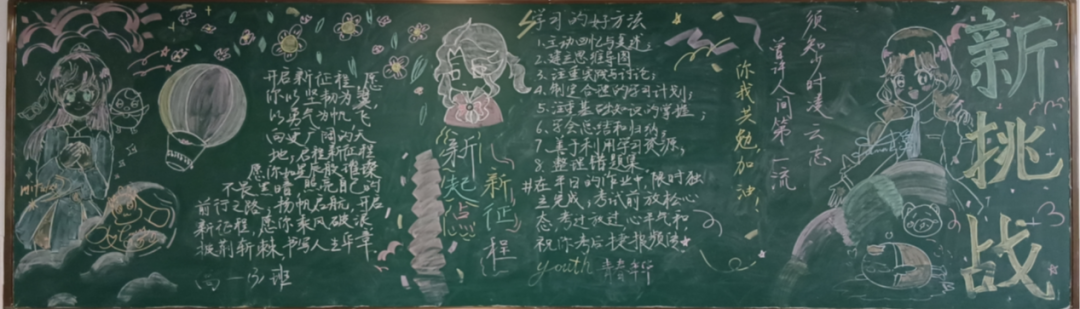 开启新征程,愿
你以坚韧为翼
以勇气为帆飞
向更广阔的天
地,启程新征程
愿你如晨
不畏黑暗,照亮自己的
前行之路,扬帆启航,开启
新征程,愿你乘风破浪
披荆斩棘,书写人生华章
班
新起点
新征程
学习的好方法
1.主动回忆与复述;
2.建立思维导图
3.注重实践与讨论;
4.制定合理的学习计划;
5.注重基础知识的掌握;
6.学会总结和归纳;
7.善于利用学习资源;
8.整理错题集
#在平日的作业中,限时独
立完成,考试前放松心
态,考过放过,心平气和,
祝你考后捷报频传
youth 青春年华
你我共勉,加油
须知少时凌云志
曾许人间第一流
新挑战